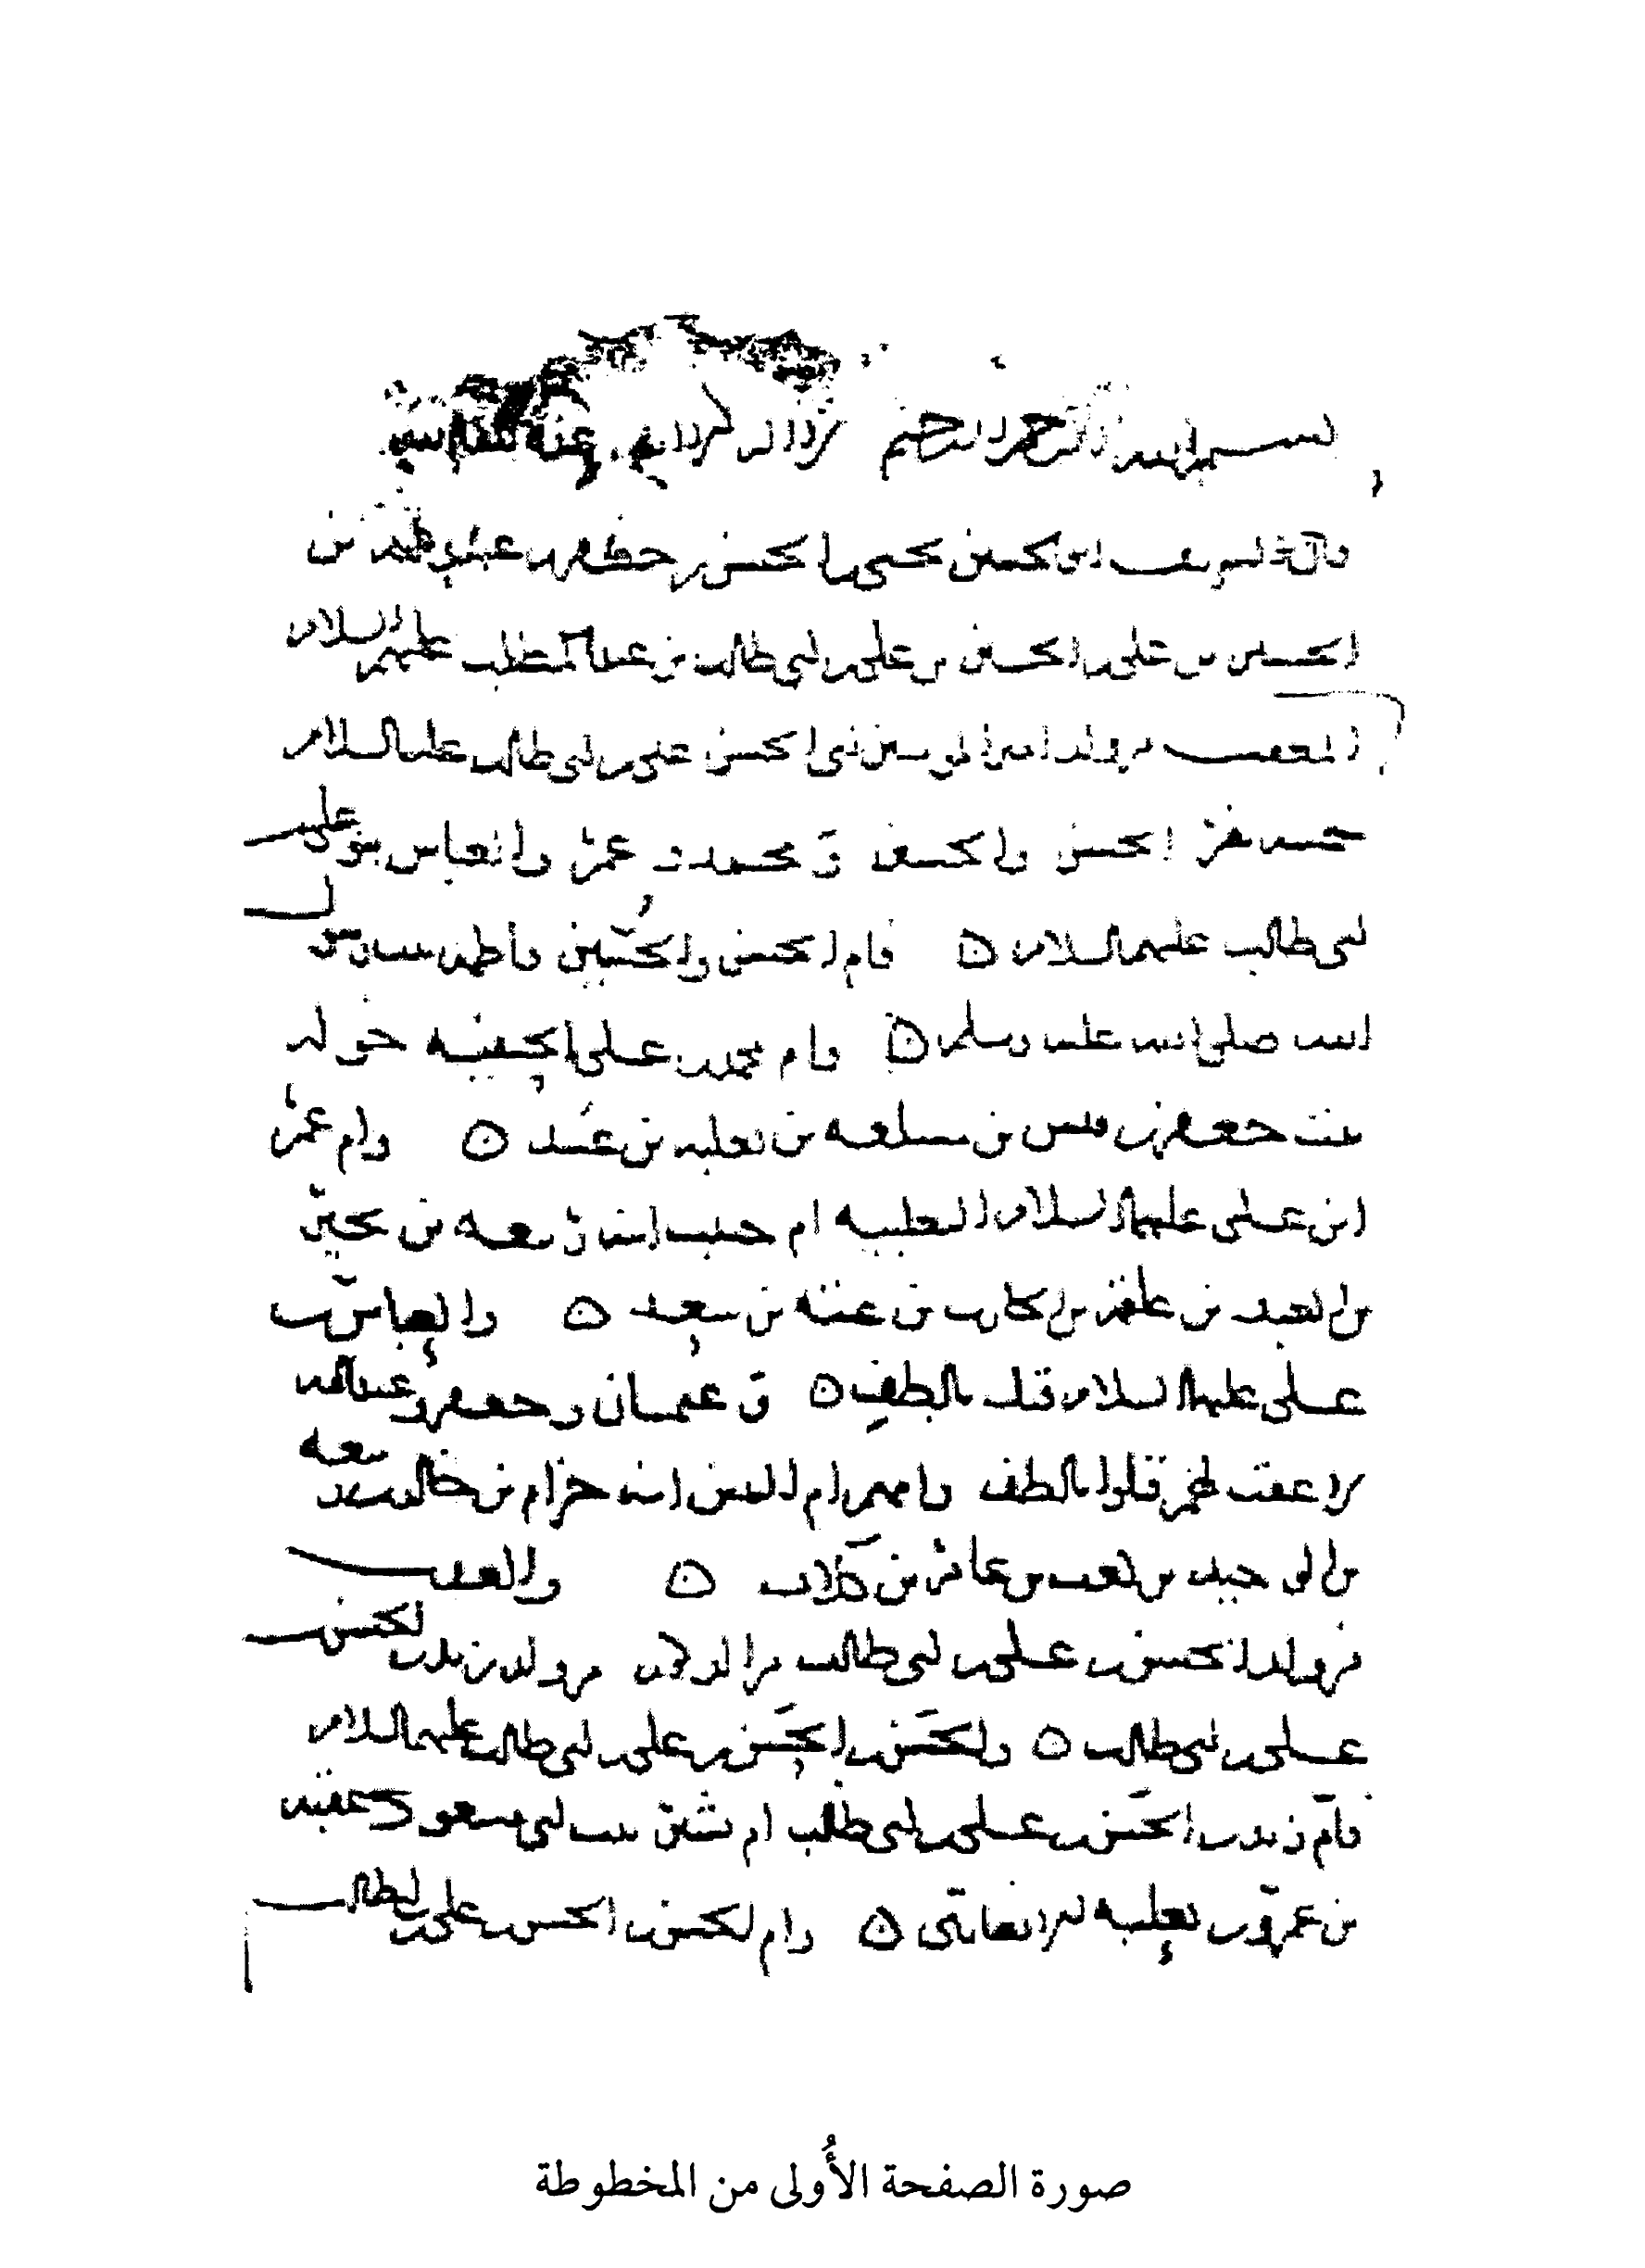 بسم الله الرحمن الرحيم
قال الشريف ابن الحسين يحيى بن الحسن بن جعفر بن عبيد الله بن
الحسين بن علي بن الحسين بن علي بن ابي طالب بن عبد المطلب عليهم السلام
المعقب من ولد امير المومنين ابي الحسن علي بن ابي طالب عليه السلام
خمسة نفر الحسن والحسين و محمد و عمر والعباس بنو علي بن
ابي طالب عليهم السلام ⊙ فام الحسن والحسين فاطمة بنت رسول
الله صلى الله عليه وسلم ⊙ وام محمد بن علي الحنفية خولة
بنت جعفر بن قيس بن مسلمة بن ثعلبة بن عبيد ⊙ وام عمر
ابن علي عليهما السلام التغلبية ام حبيب ابنة ربيعة بن بحير
بن العبد بن علقمة بن الحارث بن عتبة بن سعيد ⊙ والعباس بن
علي عليهما السلام قتل بالطف ⊙ و عثمان و جعفر وعبد الله
لا عقب لهم قتلوا بالطف وامهم ام البنين ابنة حزام بن خالد بن ربيعة
بن الوحيد بن كعب بن عامر بن كلاب ⊙ والعقب
من ولد الحسن بن علي بن ابي طالب من الذكور من ولد زيد بن الحسن بن
علي بن ابي طالب ⊙ والحسن بن الحسن بن علي بن ابي طالب عليهم السلام
فام زيد بن الحسن بن علي بن ابي طالب ام بشير بنت ابي مسعود عقبة
بن عمرو بن ثعلبة الانصاري ⊙ وام الحسن بن الحسن بن علي بن ابي طالب
صورة الصفحة الأُولى من المخطوطة